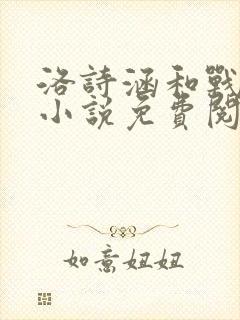 洛詩涵和戰
小說免費閱
如意妞妞